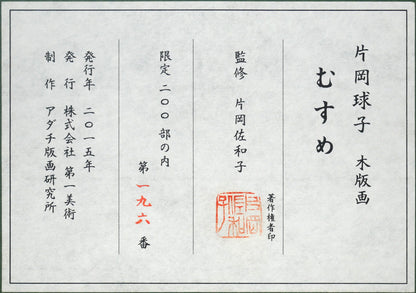 片岡球子 木版画
むすめ
著作権者印
監修 片岡佐和子
限定 二〇〇部の内
第一九六番
発行年 二〇一五年
発行 株式会社 第一美術
制作 アダチ版画研究所